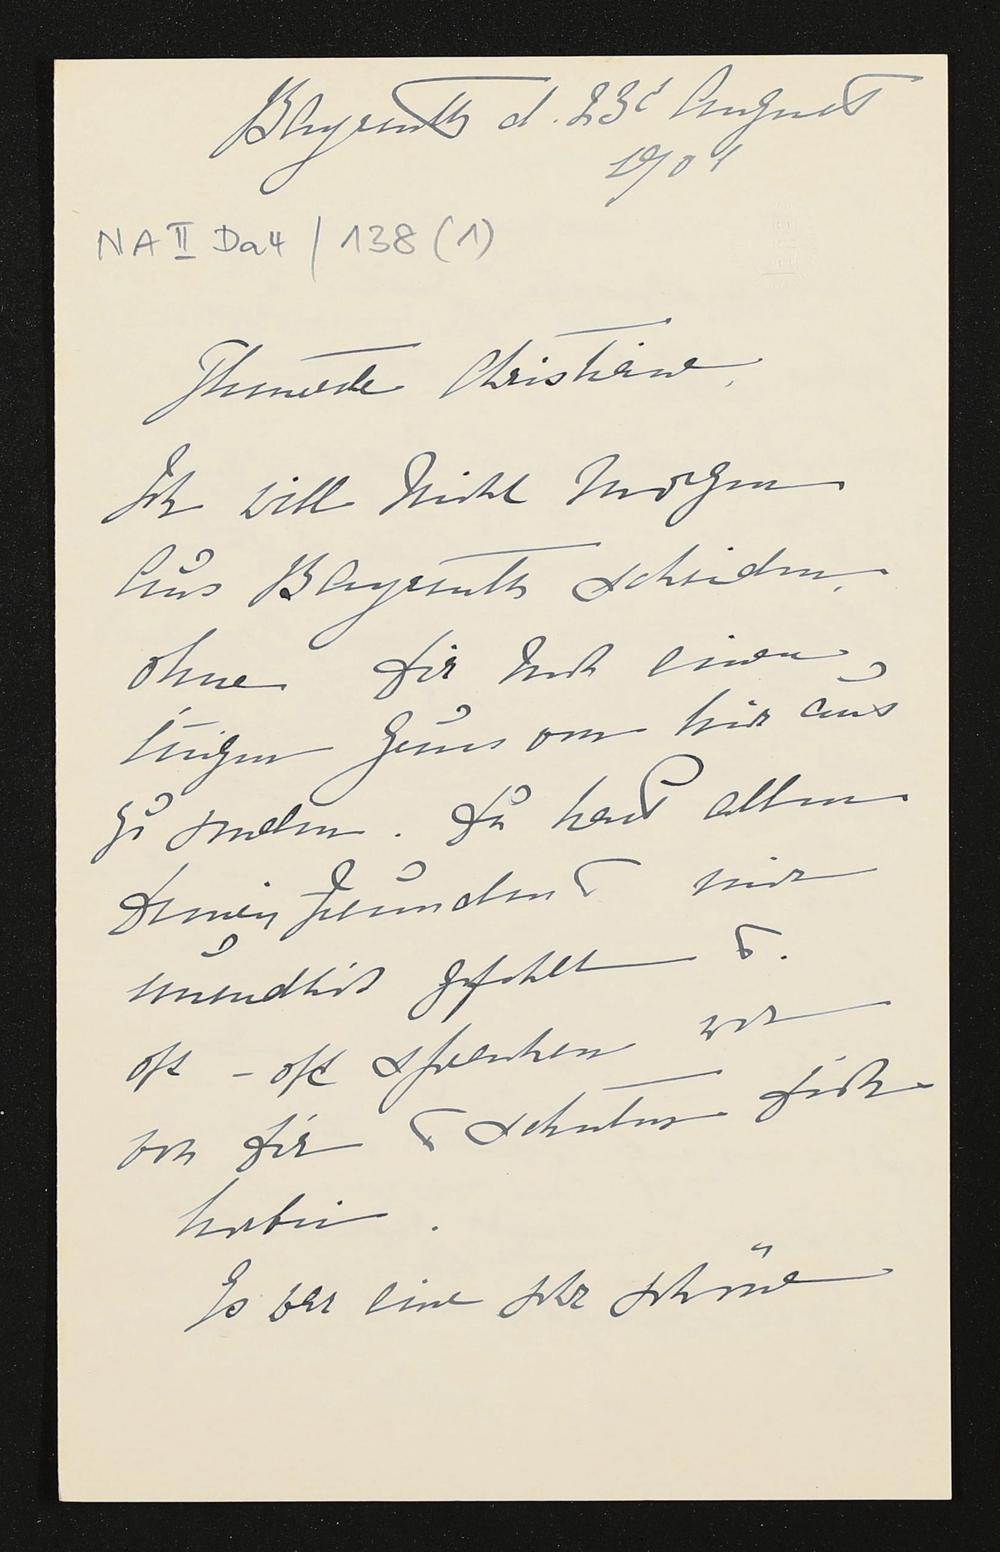 Bayreuth d. 23t August
1904
NA II Da4 / 138 (1)
Christiane,
Ich will nicht morgen
aus Bayreuth scheiden,
ohne Dir noch einen
innigen Gruss von hier aus
zu senden. Du hast allen
Deinen Freunden u mir
unendlich gefehlt u.
oft – oft sprachen wir
von Dir u sehnten Dich
herbei.
Es war eine sehr schöne